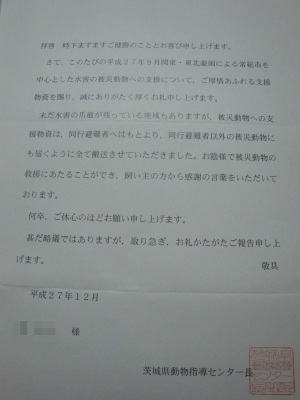 拝啓　時下ますますご健勝のこととお喜び申し上げます。
さて、このたびの平成27年9月関東・東北豪雨による常総市を
中心とした水害の被災動物への支援について、ご厚情あふれる支援
物資を賜り、誠にありがたく厚くお礼申し上げます。
未だ水害の爪痕が残っている地域もありますが、被災動物への支
援物資は、同行避難者へはもとより、同行避難者以外の被災動物に
も届くように全て搬送させていただきました。お陰様で被災動物の
救援にあたることができ、飼い主の方から感謝の言葉をいただいて
おります。
何卒、ご休心のほどお願い申し上げます。
甚だ略儀ではありますが、取り急ぎ、お礼かたがたご報告申し上
げます。
敬具
平成27年12月
様
茨城県動物指導センター長